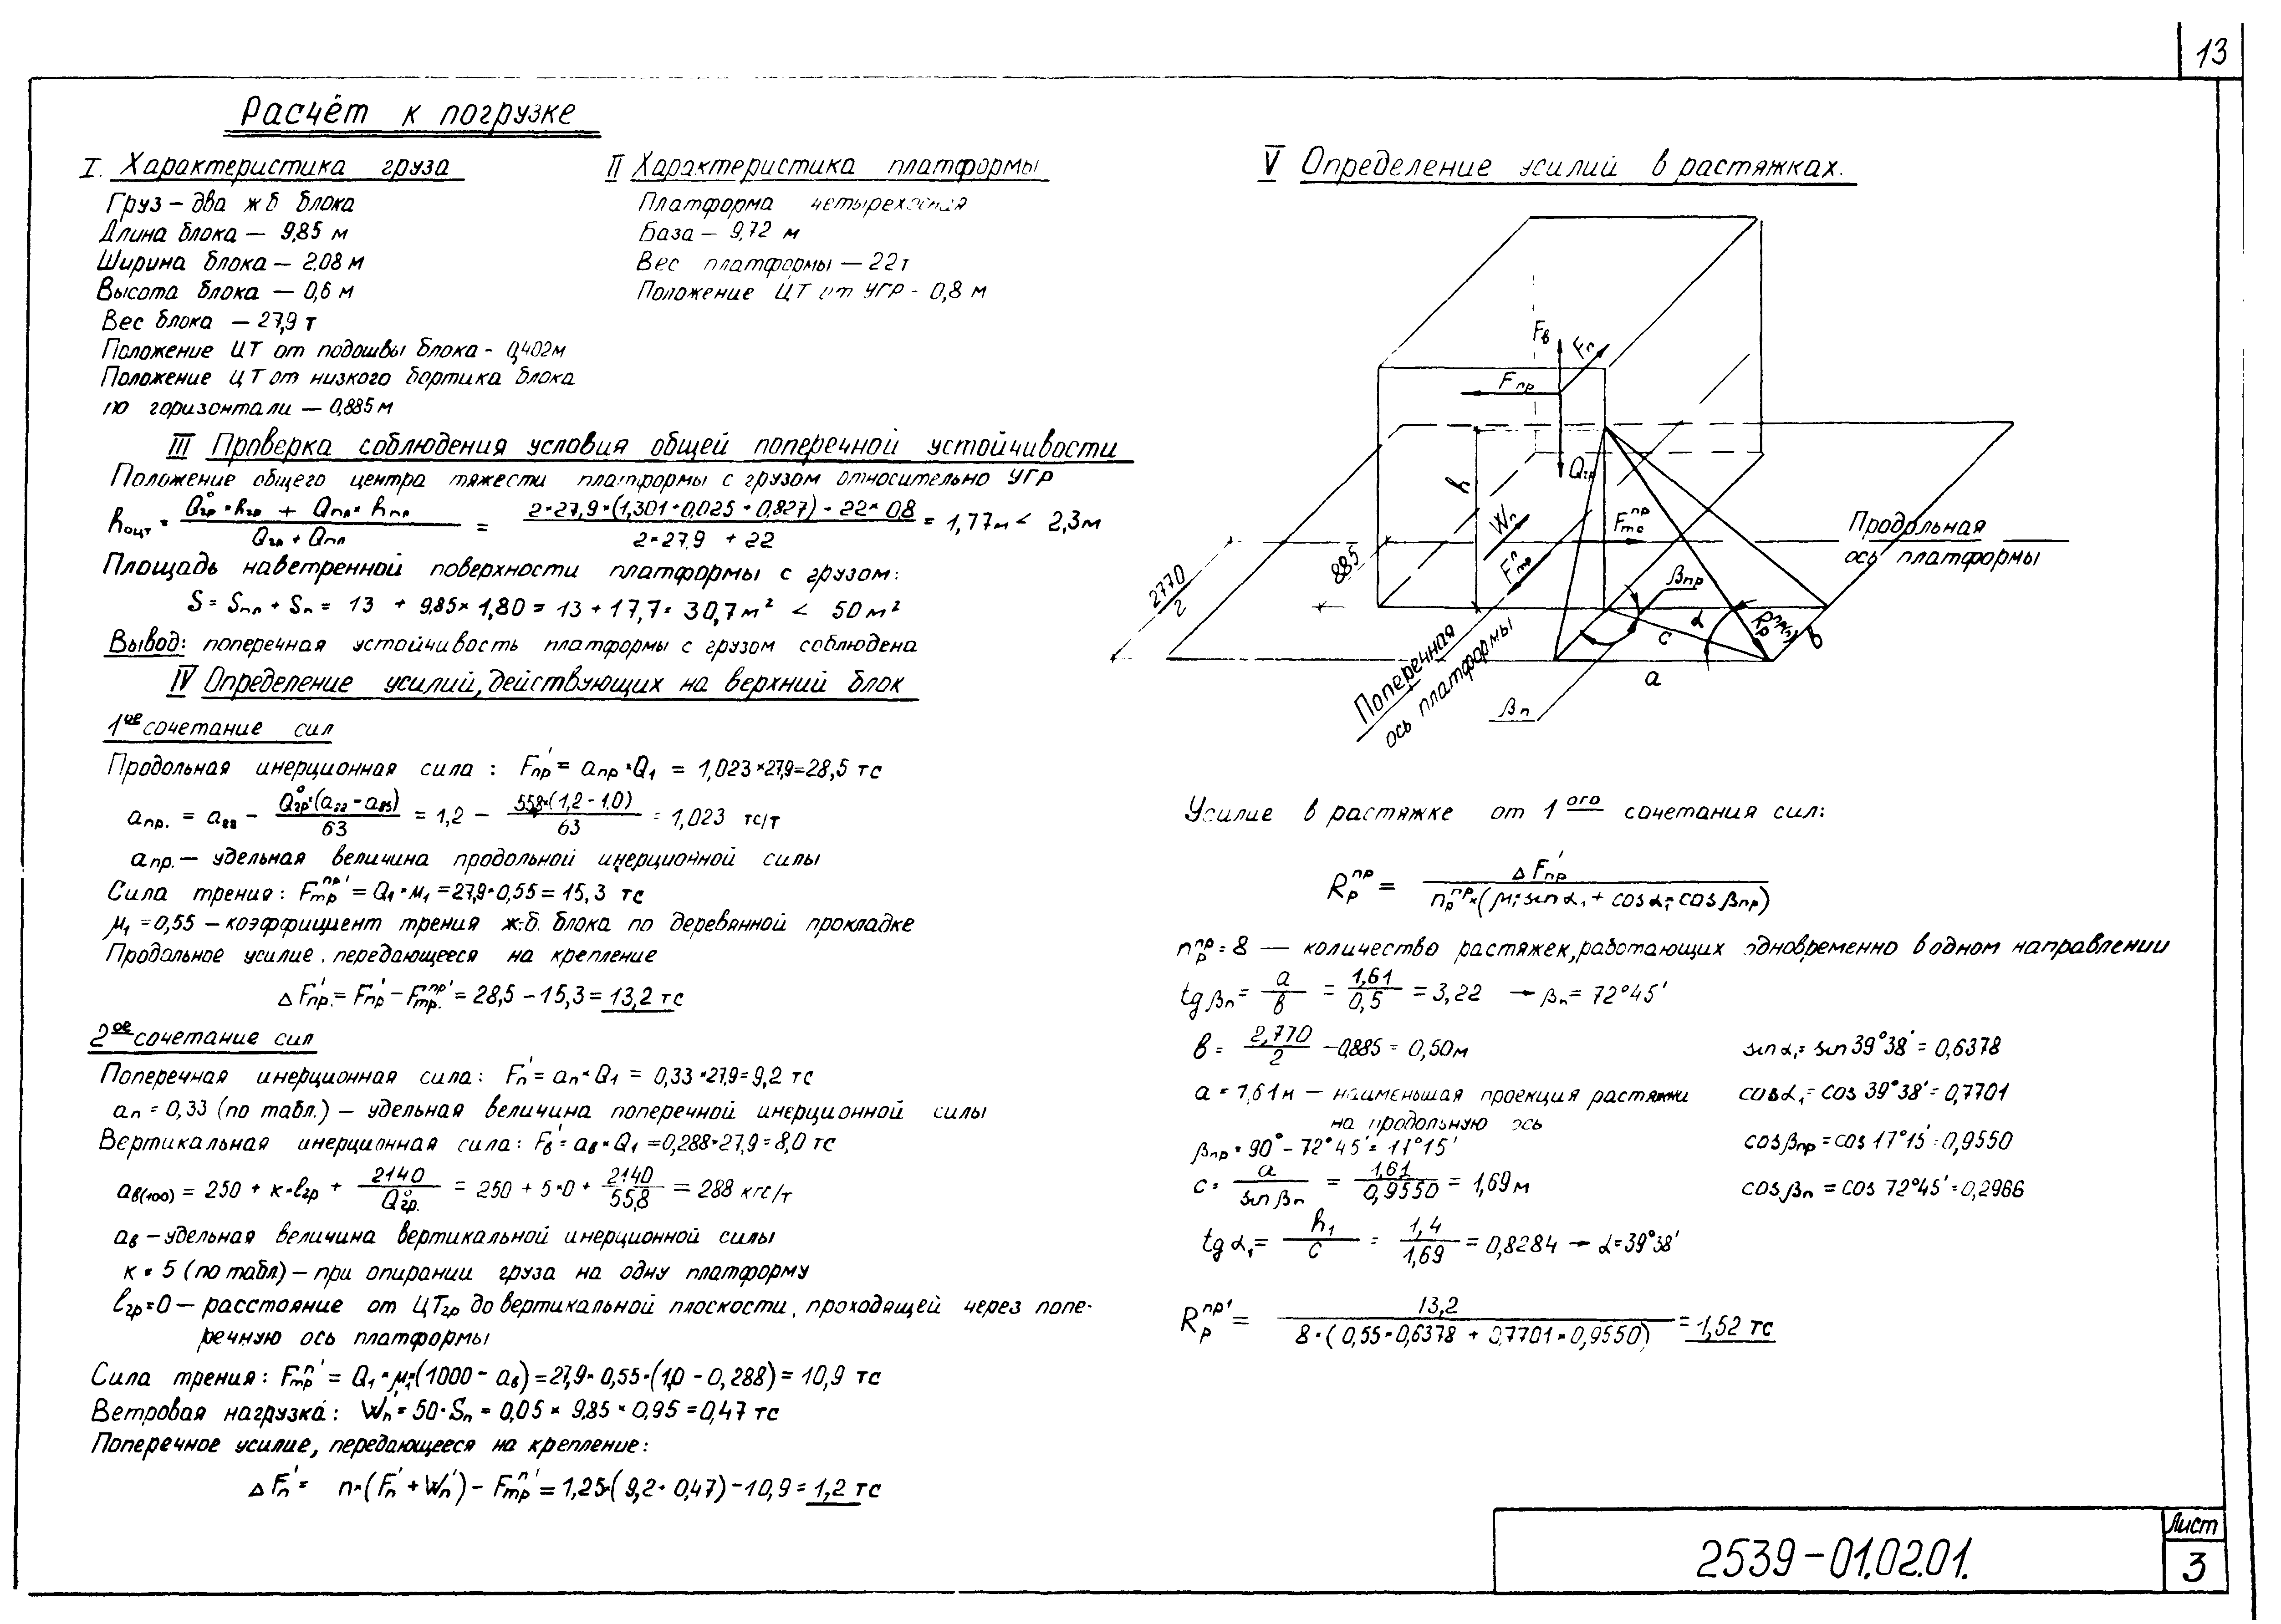 13
Расчёт к погрузке
I. Характеристика груза
Груз – два ж б блока
Длина блока — 9,85 м
Ширина блока — 2.08 м
Высота блока — 0,6 м
Вес блока — 27,9 т
Положение ЦТ от подошвы блока - 0,402м
Положение ЦТ от низкого бортика блока
по горизонтали — 0,885 м
II Характеристика платформы
Платформа четырехосная
База — 9,72 м
Вес платформы — 22т
Положение ЦТ от УГР - 0,8 м
III Проверка соблюдения условия общей поперечной устойчивости
Положение общего центра тяжести платформы с грузом относительно УГР
hоцт = (Q°гр × hгр + Qпл × hпл) / (Qгр + Qпл) = (2×27,9×(1,301+0,025+0,827)+22×0,8) / (2×27,9 + 22) = 1,77м < 2,3м
Площадь наветренной поверхности платформы с грузом:
S = Sпл + Sп = 13 + 9,85×1,80 = 13 + 17,7 = 30,7 м² < 50 м²
Вывод: поперечная устойчивость платформы с грузом соблюдена
IV Определение усилий, действующих на верхний блок
1ое сочетание сил
Продольная инерционная сила : F'пр = aпр × Q1 = 1,023×27,9=28,5 тс
aпр. = a22 - Q°гр×(a22 - a85) / 63 = 1,2 - 55,8×(1,2-1.0) / 63 = 1,023 тс/т
aпр. — удельная величина продольной инерционной силы
Сила трения : Fтр^пр' = Q1 × μ1 = 27,9×0,55 = 15,3 тс
μ1 = 0,55 — коэффициент трения ж.б. блока по деревянной прокладке
Продольное усилие, передающееся на крепление
ΔF'пр. = F'пр – Fтр.^пр' = 28,5 – 15,3 = 13,2 тс
2ое сочетание сил
Поперечная инерционная сила : F'п = aп × Q1 = 0,33×27,9=9,2 тс
aп = 0,33 (по табл.) — удельная величина поперечной инерционной силы
Вертикальная инерционная сила : F'в = aв × Q1 = 0,288×27,9=8,0 тс
aв(100) = 250 + к×lгр + 2140 / Q°гр. = 250 + 5×0 + 2140 / 55,8 = 288 кгс/т
aв — удельная величина вертикальной инерционной силы
к = 5 (по табл) — при опирании груза на одну платформу
lгр=0 — расстояние от ЦТгр до вертикальной плоскости, проходящей через попе-
речную ось платформы
Сила трения : Fтр^п' = Q1 × μ1×(1000 - aв) = 27,9×0,55×(1,0 - 0,288) = 10,9 тс
Ветровая нагрузка : W'п = 50×Sп = 0,05 × 9,85 × 0,95 = 0,47 тс
Поперечное усилие, передающееся на крепление :
ΔF'п = n×(F'п + W'п) – Fтр^п' = 1,25×(9,2+0,47) – 10,9 = 1,2 тс
V Определение усилий в растяжках.
Fв
Fп
Fпр
Qгр
h
Wп
Fтр^п
Fтр^пр
2770 / 2
885
βпр
α
c
Rр^пр(п)
в
a
βп
Продольная
ось платформы
Поперечная
ось платформы
Усилие в растяжке от 1ого сочетания сил:
Rр^пр = ΔF'пр / nр^пр×(μ1×sin α1 + cos α1×cos βпр)
nр^пр = 8 — количество растяжек, работающих одновременно в одном направлении
tg βп = a / в = 1,61 / 0,5 = 3,22 → βп = 72°45'
в = 2,770 / 2 - 0,885 = 0,50м
sin α1 = sin 39°38' = 0,6378
a = 1,61м — наименьшая проекция растяжки
на продольную ось
cos α1 = cos 39°38' = 0,7701
βпр = 90° – 72°45' = 17°15'
cos βпр = cos 17°15' = 0,9550
c = a / sin βп = 1,61 / 0,9550 = 1,69м
cos βп = cos 72°45' = 0,2966
tg α1 = h1 / c = 1,4 / 1,69 = 0,8284 → α=39°38'
Rр^пр' = 13,2 / 8×(0,55×0,6378 + 0,7701×0,9550) = 1,52 тс
2539-01.02.01.
Лист
3